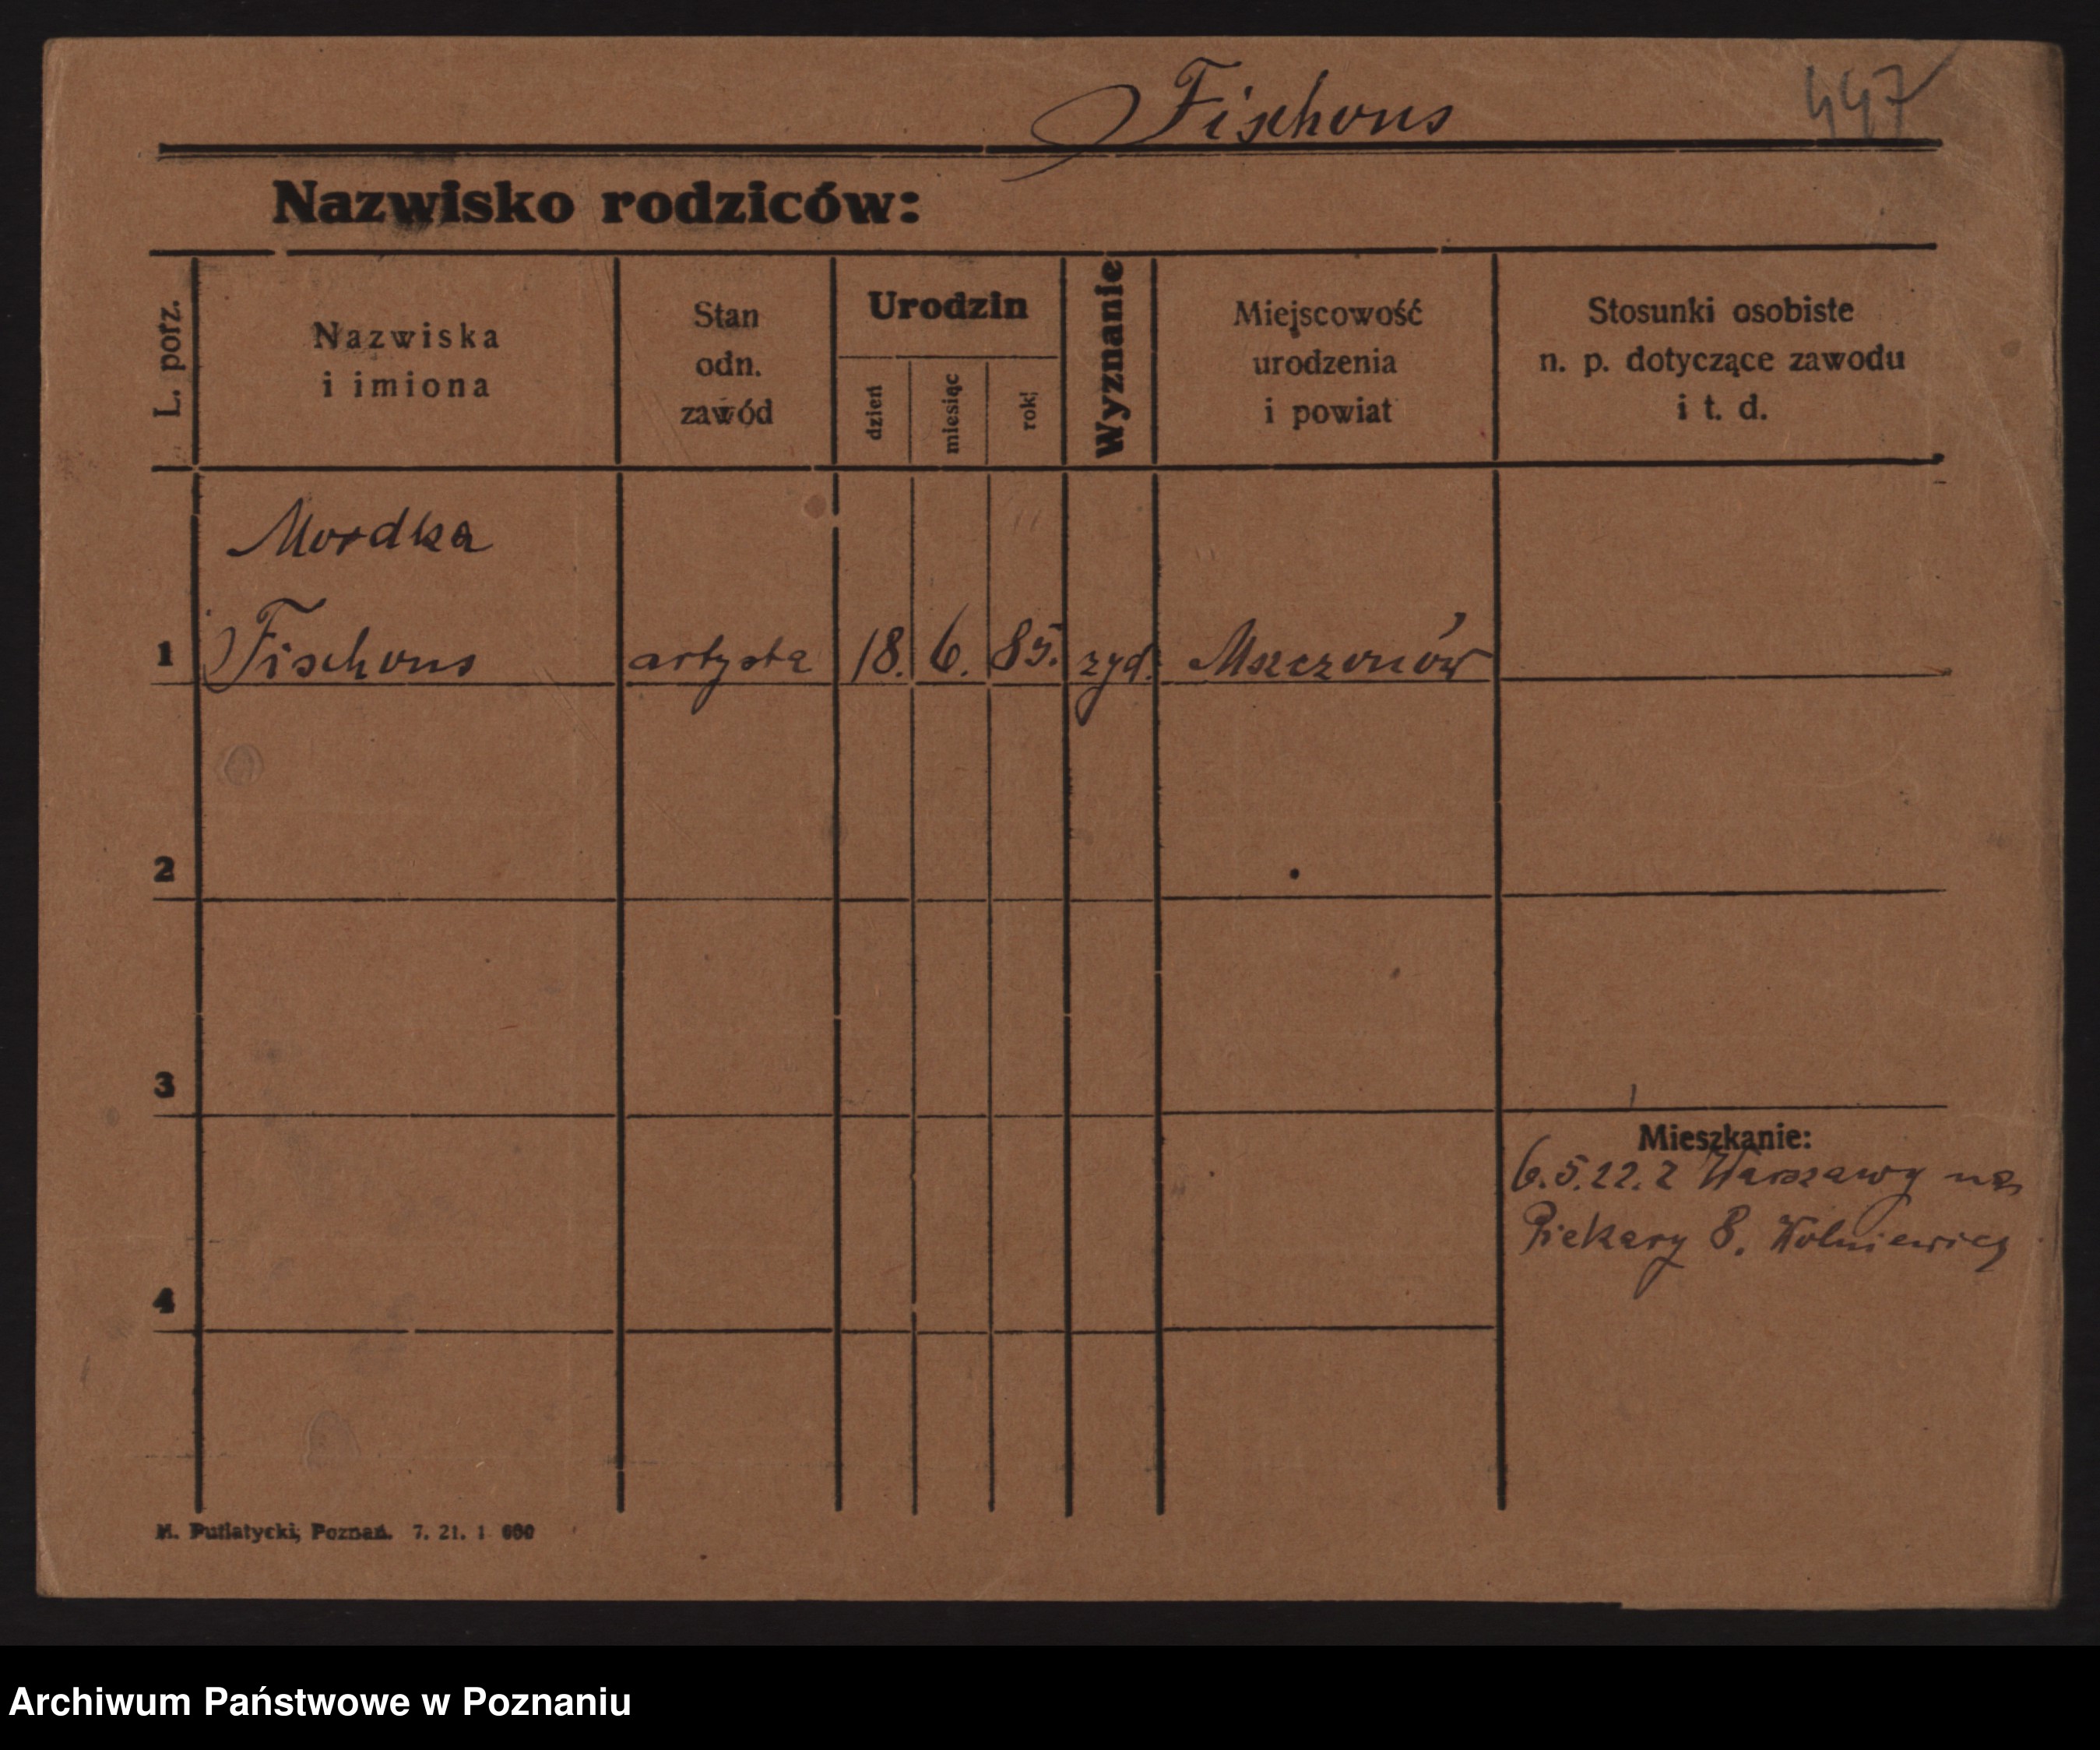 Fischons
447
Nazwisko rodziców:
L. porz.
Nazwiska
i imiona
Stan
odn.
zawód
Urodzin
dzień
miesiąc
rok
Wyznanie
Miejscowość
urodzenia
i powiat
Stosunki osobiste
n. p. dotyczące zawodu
i t. d.
Mordka
1 Fischons artysta 18. 6. 85. zyd. Mszczonów
2
3
Mieszkanie:
6.5.22. z Warszawy na
Piekary 8. Wolniewicz
4
M. Putiatycki, Poznań. 7. 21. 1 000
Archiwum Państwowe w Poznaniu